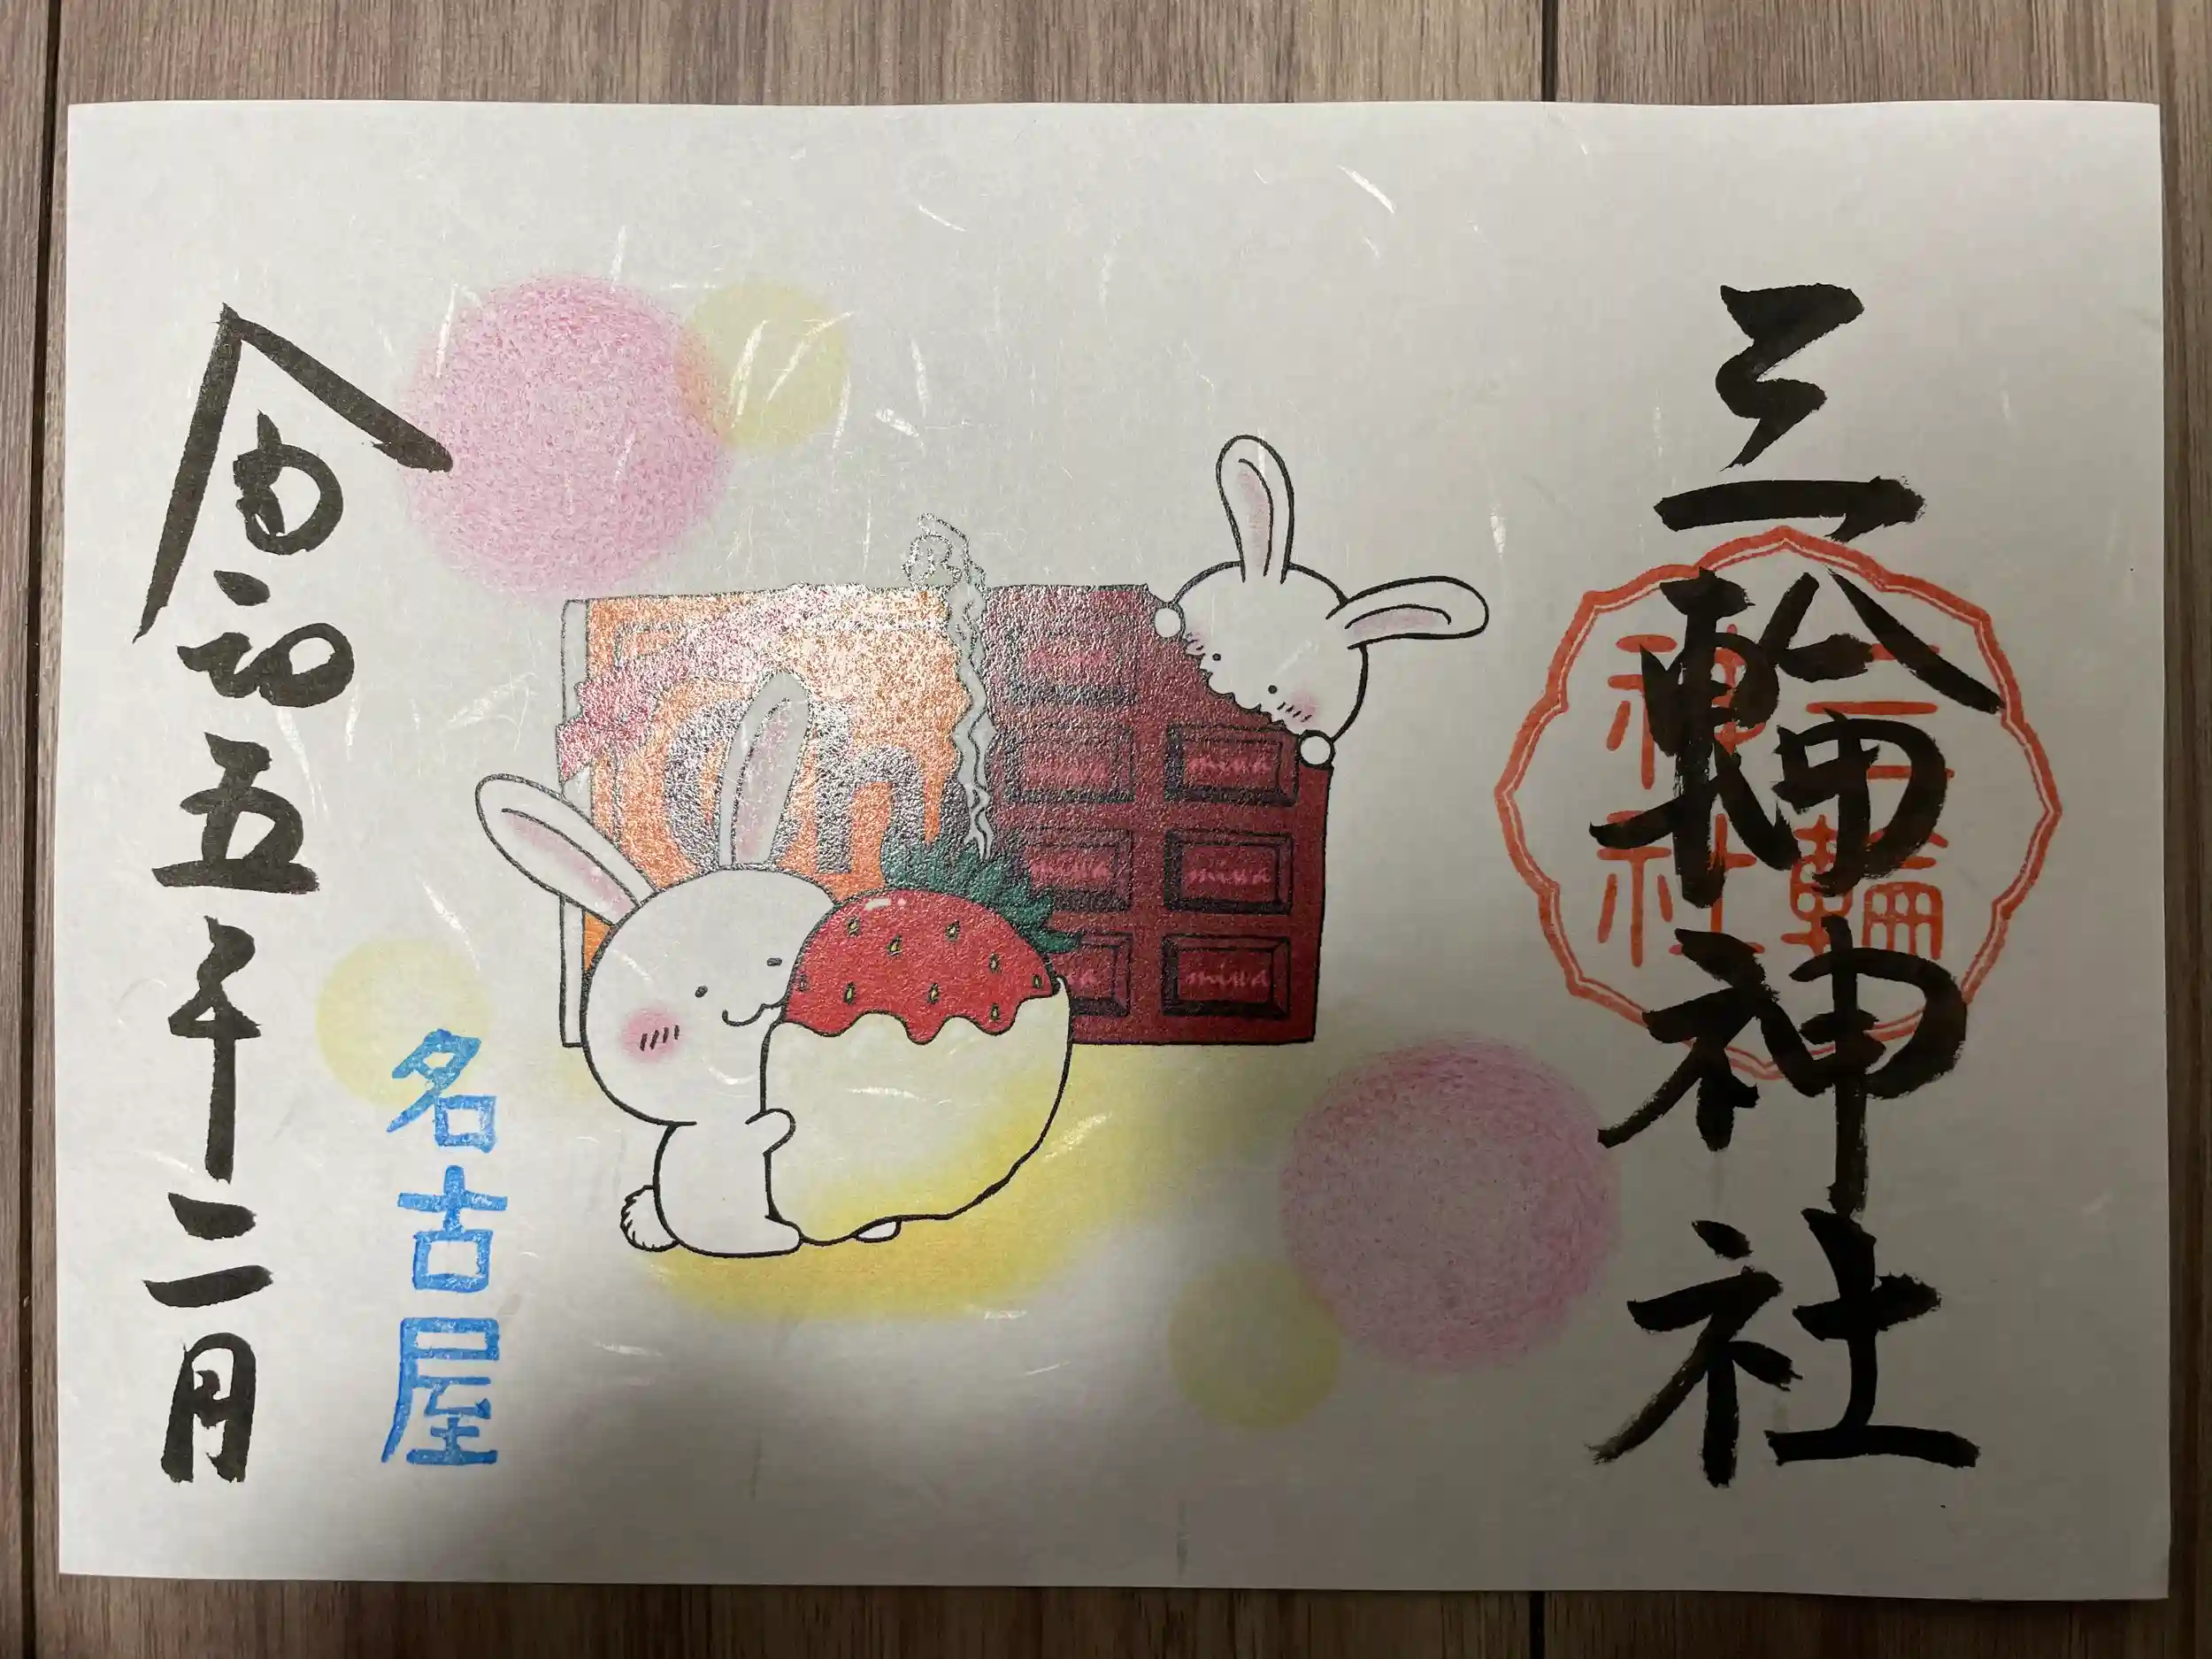 三輪神社
三輪
神社
miwa
miwa
miwa
miwa
miwa
名古屋
令和五年二月